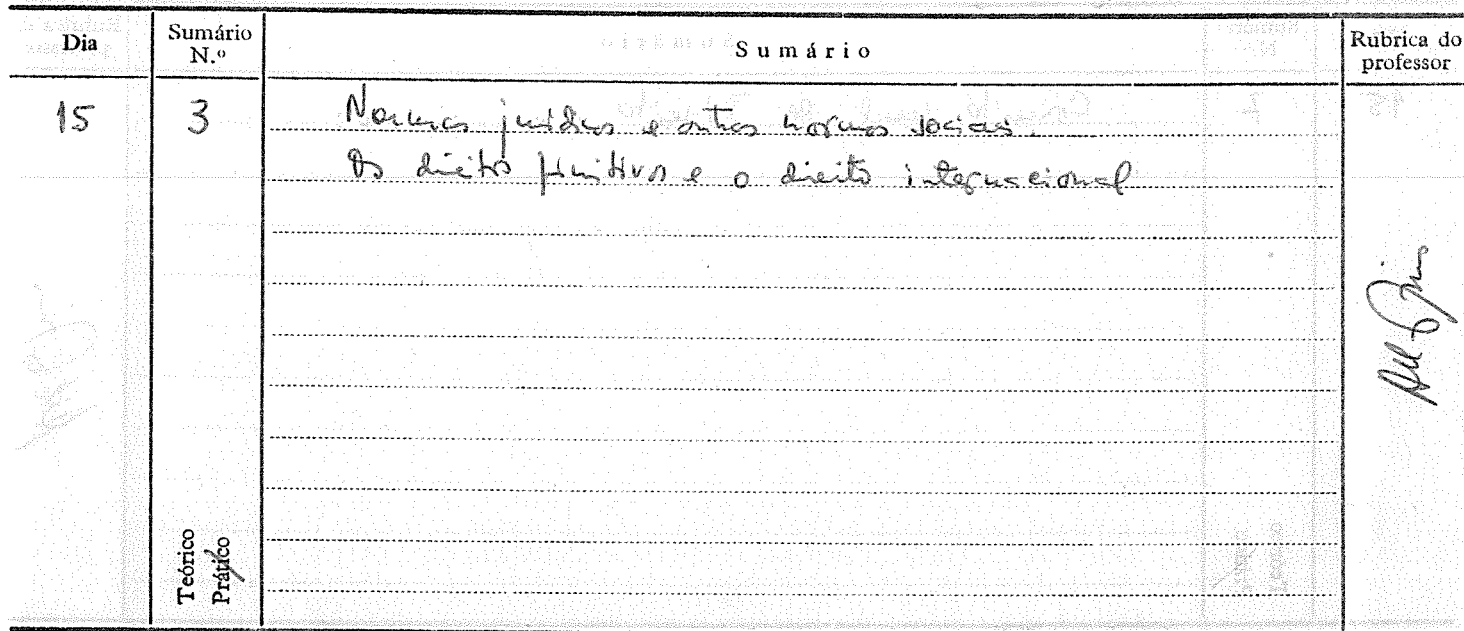 Dia
Sumário
N.º
Sumário
Rubrica do
professor
15
3
Normas jurídicas e outras normas sociais.
Os direitos primitivos e o direito internacional
Teórico
Prático